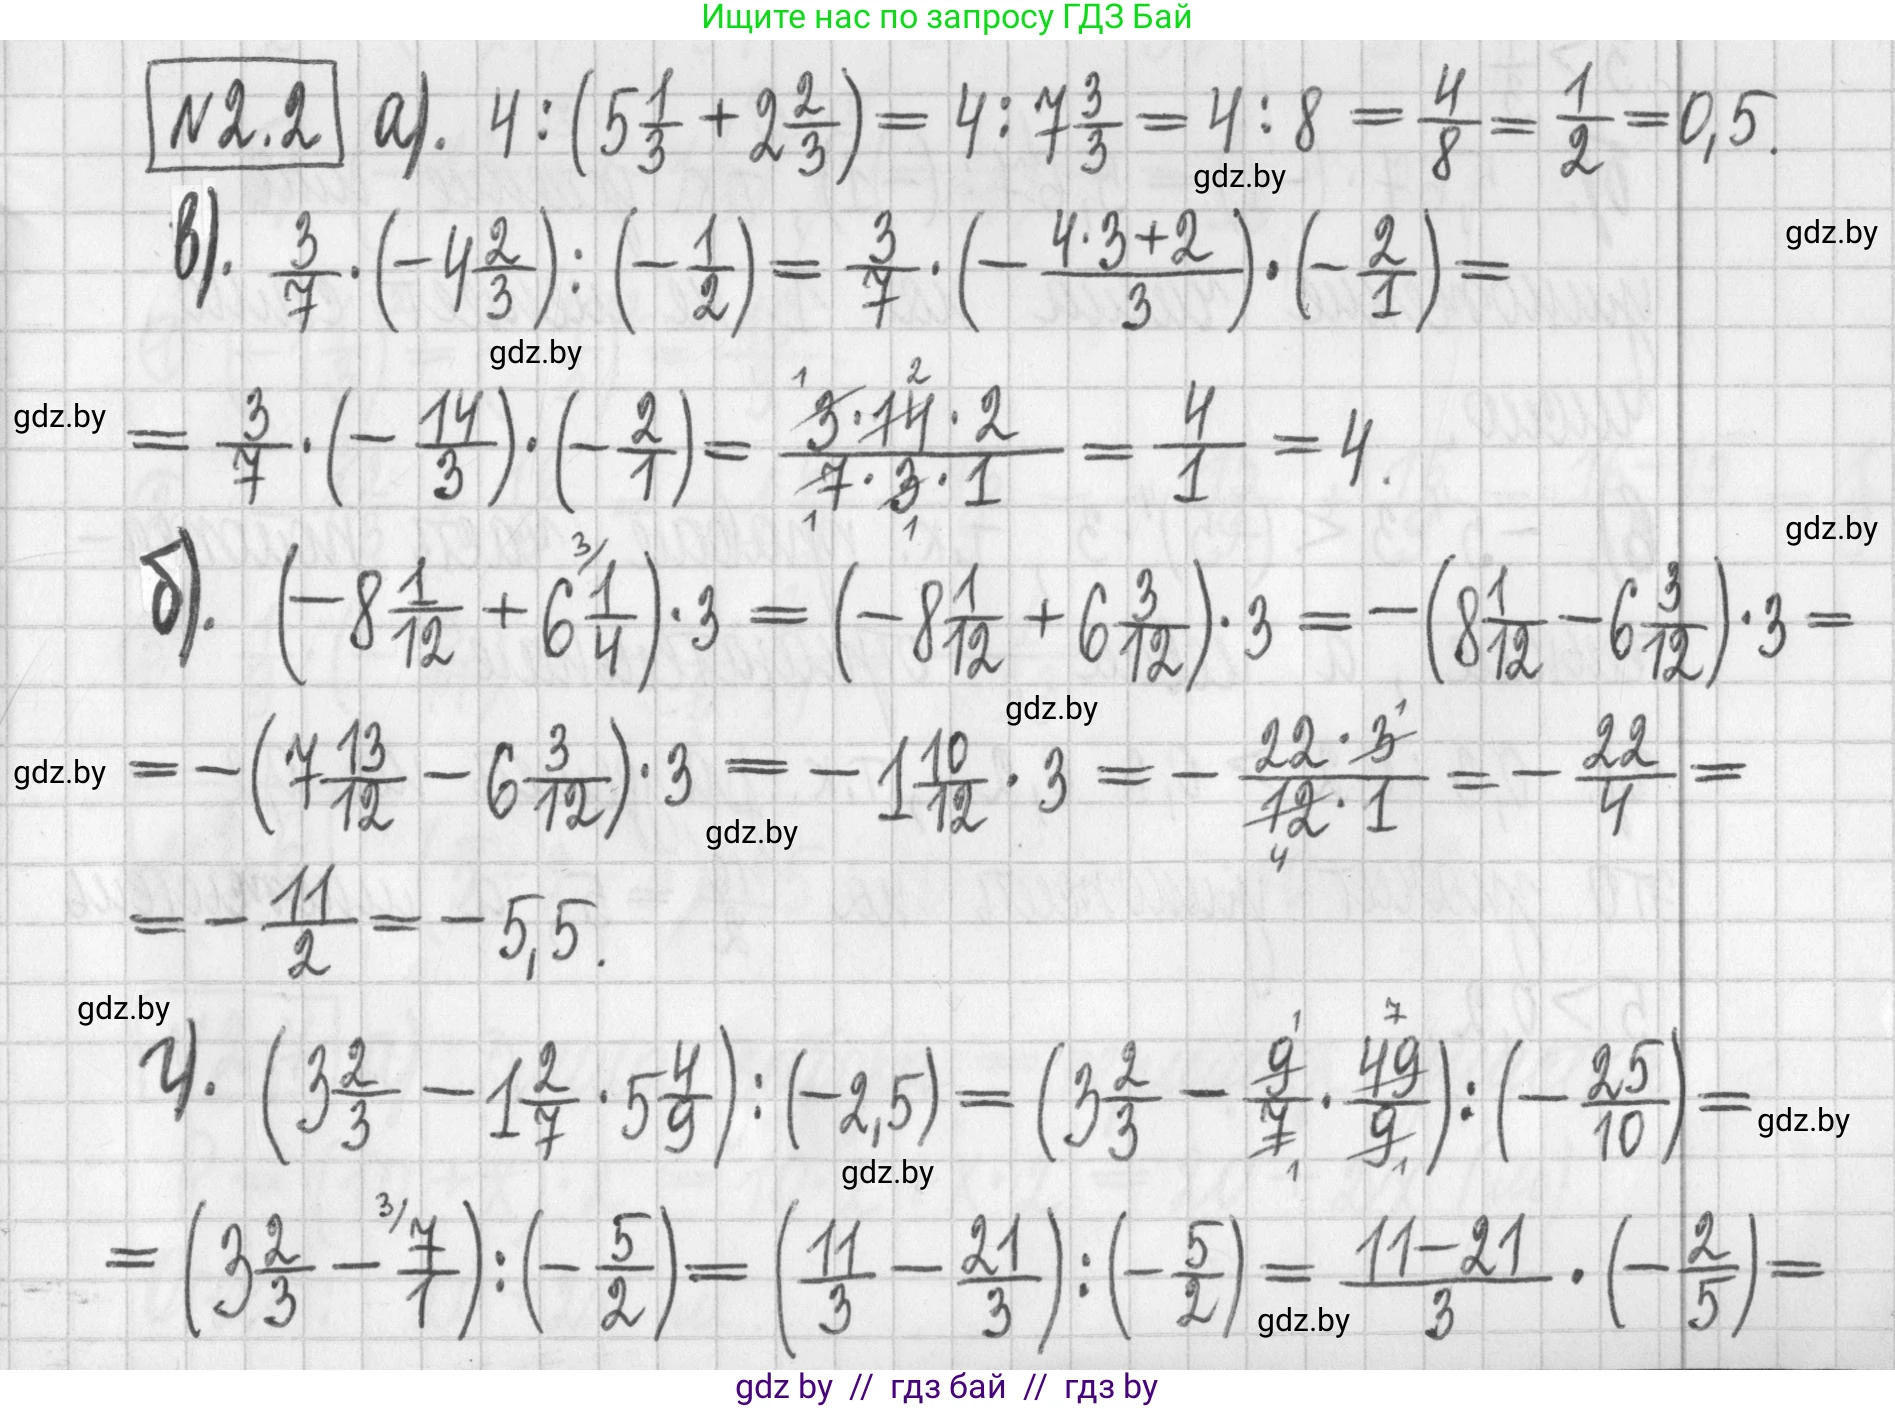 Ищите нас по запросу ГДЗ Бай
№2.2 а). 4:(5 1/3 + 2 2/3) = 4:7 3/3 = 4:8 = 4/8 = 1/2 = 0,5.
gdz.by
в). 3/7·(-4 2/3):(-1/2) = 3/7·(-(4·3+2)/3)·(-2/1) =
gdz.by
gdz.by
= 3/7·(-14/3)·(-2/1) = (3·14·2)/(7·3·1) = 4/1 = 4.
1 2 1 1
gdz.by
gdz.by
б). (-8 1/12 + 6 1/4)·3 = (-8 1/12 + 6 3/12)·3 = -(8 1/12 - 6 3/12)·3 =
3/
gdz.by
= -(7 13/12 - 6 3/12)·3 = -1 10/12·3 = -(22·3)/(12·1) = -22/4 =
1 4
gdz.by
gdz.by
= -11/2 = -5,5.
gdz.by
г). (3 2/3 - 1 2/7·5 4/9):(-2,5) = (3 2/3 - 9/7·49/9):(-25/10) =
1 7 1 1
gdz.by
gdz.by
= (3 2/3 - 7/1):(-5/2) = (11/3 - 21/3):(-5/2) = (11-21)/3·(-2/5) =
3/
gdz.by
gdz by // гдз бай // гдз by